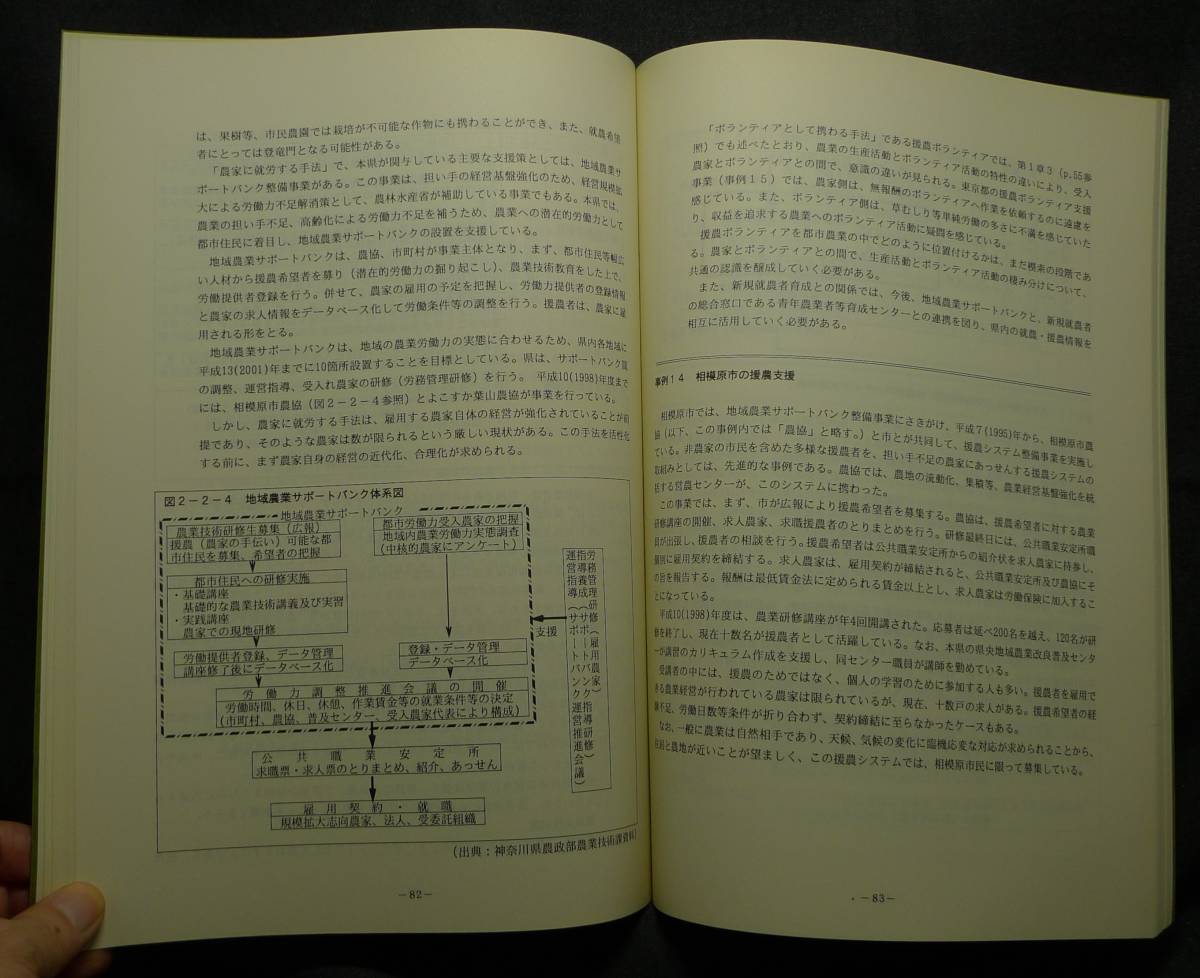 は、果樹等、市民農園では栽培が不可能な作物にも携わることができ、また、就農希望
者にとっては登竜門となる可能性がある。
「農家に就労する手法」で、本県が関与している主要な支援策としては、地域農業サ
ポートバンク整備事業がある。この事業は、担い手の経営基盤強化のため、経営規模拡
大による労働力不足解消策として、農林水産省が補助している事業でもある。本県では、
農業の担い手不足、高齢化による労働力不足を補うため、農業への潜在的労働力として
都市住民に着目し、地域農業サポートバンクの設置を支援している。
地域農業サポートバンクは、農協、市町村が事業主体となり、まず、都市住民等幅広
い人材から援農希望者を募り（潜在的労働力の掘り起こし）、農業技術教育をした上で、
労働提供者登録を行う。併せて、農家の雇用の予定を把握し、労働力提供者の登録情報
と農家の求人情報をデータベース化して労働条件等の調整を行う。援農者は、農家に雇
用される形をとる。
地域農業サポートバンクは、地域の農業労働力の実態に合わせるため、県内各地域に
平成13(2001)年までに10箇所設置することを目標としている。県は、サポートバンク間
の調整、運営指導、受入れ農家の研修（労務管理研修）を行う。 平成10(1998)年度まで
には、相模原市農協（図２－２－４参照）とよこすか葉山農協が事業を行っている。
しかし、農家に就労する手法は、雇用する農家自体の経営が強化されていることが前
提であり、そのような農家は数が限られるという厳しい現状がある。この手法を活性化
する前に、まず農家自身の経営の近代化、合理化が求められる。
図２－２－４ 地域農業サポートバンク体系図
地域農業サポートバンク
農業技術研修生募集（広報）
援農（農家の手伝い）可能な都
市住民を募集、希望者の把握
都市労働力受入農家の把握
地域内農業労働力実態調査
（中核的農家にアンケート）
都市住民への研修実施
・基礎講座
基礎的な農業技術講義及び実習
・実践講座
農家での現地研修
労働提供者登録、データ管理
講座修了後にデータベース化
登録・データ管理
データベース化
労働力調整推進会議の開催
労働時間、休日、休憩、作業賃金等の就業条件等の決定
（市町村、農協、普及センター、受入農家代表により構成）
支援
労務管理研修（雇用農家）
指導養成（サポートバンク指導研修）
運営指導（サポートバンク運営推進会議）
公共職業安定所
求職票・求人票のとりまとめ、紹介、あっせん
雇用契約・就職
規模拡大志向農家、法人、受委託組織
（出典：神奈川県農政部農業技術課資料）
－82－
「ボランティアとして携わる手法」である援農ボランティアでは、第１章３（p.55参
照）でも述べたとおり、農業の生産活動とボランティア活動の特性の違いにより、受入
農家とボランティアとの間で、意識の違いが見られる。東京都の援農ボランティア支援
事業（事例１５）では、農家側は、無報酬のボランティアへ作業を依頼するのに遠慮を
感じている。また、ボランティア側は、草むしり等単純労働の多さに不満を感じていた
り、収益を追求する農業へのボランティア活動に疑問を感じている。
援農ボランティアを都市農業の中でどのように位置付けるかは、まだ模索の段階であ
る。農家とボランティアとの間で、生産活動とボランティア活動の棲み分けについて、
共通の認識を醸成していく必要がある。
また、新規就農者育成との関係では、今後、地域農業サポートバンクと、新規就農者
の総合窓口である青年農業者等育成センターとの連携を図り、県内の就農・援農情報を
相互に活用していく必要がある。
事例１４ 相模原市の援農支援
相模原市では、地域農業サポートバンク整備事業にさきがけ、平成７(1995)年から、相模原市農
協（以下、この事例内では「農協」と略す。）と市とが共同して、援農システム整備事業を実施し
ている。非農家の市民を含めた多様な援農者を、担い手不足の農家にあっせんする援農システムの
取組みとしては、先進的な事例である。農協では、農地の流動化、集積等、農業経営基盤強化を統
括する営農センターが、このシステムに携わった。
この事業では、まず、市が広報により援農希望者を募集する。農協は、援農希望者に対する農業
研修講座の開催、求人農家、求職援農者のとりまとめを行う。研修最終日には、公共職業安定所職
員が出張し、援農者の相談を行う。援農希望者は公共職業安定所からの紹介状を求人農家に持参し、
個別に雇用契約を締結する。求人農家は、雇用契約が締結されると、公共職業安定所及び農協にそ
の旨を報告する。報酬は最低賃金法に定められる賃金以上とし、求人農家は労働保険に加入するこ
とになっている。
平成10(1998)年度は、農業研修講座が年4回開講された。応募者は延べ200名を越え、120名が研
修を終了し、現在十数名が援農者として活躍している。なお、本県の県央地域農業改良普及センタ
ーが講習のカリキュラム作成を支援し、同センター職員が講師を勤めている。
受講者の中には、援農のためではなく、個人の学習のために参加する人も多い。援農者を雇用で
きる農業経営が行われている農家は限られているが、現在、十数戸の求人がある。援農希望者の経
験不足、労働日数等条件が折り合わず、契約締結に至らなかったケースもある。
なお、一般に農業は自然相手であり、天候、気候の変化に臨機応変な対応が求められることから、
住居と農地が近いことが望ましく、この援農システムでは、相模原市民に限って募集している。
－83－